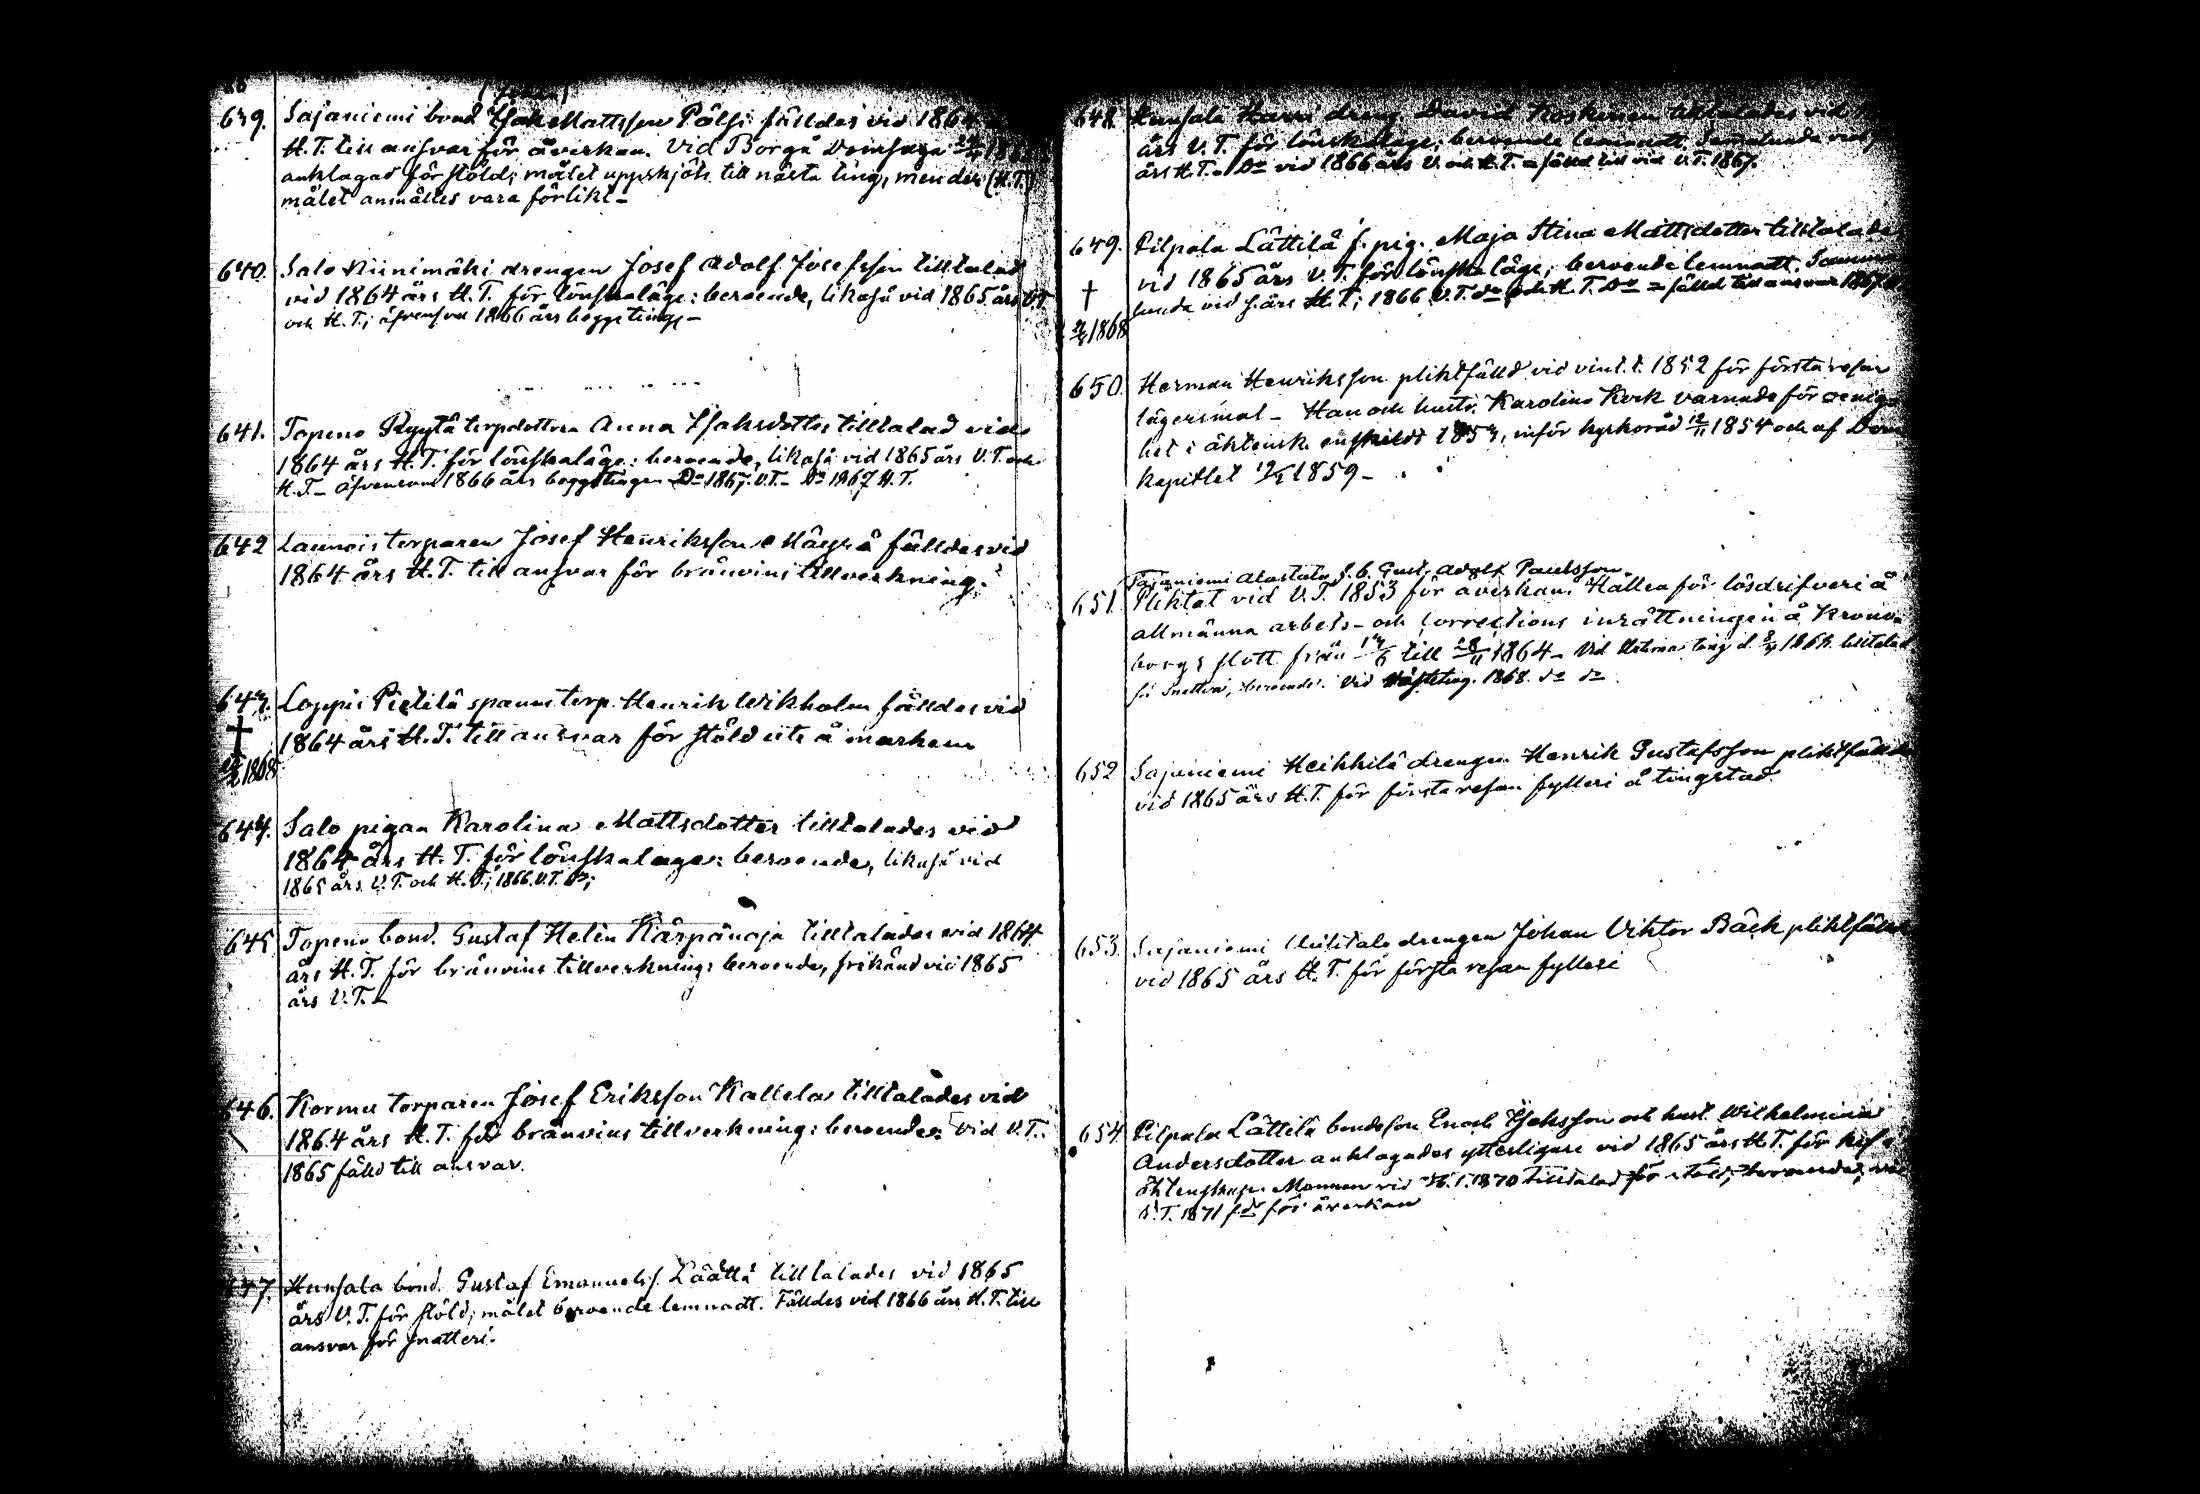 639. Sajaniemi bond. Isak Mattsson Pälsi fälldes vid 1864
H.T. till ansvar för åverkan. Vid Borgå Domsaga
anklagad för stöld; målet uppskjöts till nästa ting, men der (H.T.)
målet anmältes vara förlikt –
640. Salo Niinimäki drengen Josef Adolf Josefsson tilltalad
vid 1864 års H.T. för lönskaläge: beroende, likaså vid 1865 års V.T.
och H.T.; äfvensom 1866 års begge ting –
641. Topeno Ryytä torpdottren Anna Isaksdotter tilltalad vid
1864 års H.T. för lönskaläge: beroende, likaså vid 1865 års V.T. och
H.T. – äfvensom 1866 års begge tingen Do 1867 V.T. – Do 1867 H.T.
642 Launois torparen Josef Henriksson Mäyrä fälldes vid
1864 års H.T. till ansvar för bränvins tillverkning.
643. Loppis Pietilä spanm. torp. Henrik Wikholm fälldes vid
† 1864 års H.T. till ansvar för stöld ute å marken
1868
644. Salo pigan Karolina Mattsdotter tilltalades vid
1864 års H.T. för lönskaläge: beroende, likaså vid
1865 års V.T. och H.T.; 1866 V.T. Do;
645 Topeno bond. Gustaf Helin Kärpänoja tilltalades vid 1864
års H.T. för bränvins tillverkning: beroende, frikänd vid 1865
års V.T. –
646. Kormu torparen Josef Eriksson Kallela tilltalades vid
1864 års H.T. för bränvins tillverkning: beroende: Vid V.T.
1865 fälld till ansvar.
647. Hunsala bond. Gustaf Emanuelss. Läättä tilltalades vid 1865
års V.T. för stöld; målet beroende lemnadt. Fälldes vid 1866 års H.T. till
ansvar för snatteri.
648. Hunsala Harri dreng. David Koskinen tilltalades vid
års V.T. för lönskaläge; beroende lemnadt. Sammalunda vid
års H.T. – Do vid 1866 års V. och H.T. = fälld till vid V.T. 1867.
649. Pilpala Lättilä f. pig. Maja Stina Mattsdotter tilltalades
vid 1865 års V.T. för lönskaläge; beroende lemnadt. Samma
† lunda vid s. års H.T.; 1866 V.T. do och H.T. Do = fälld till ansvar 1867
1868
650. Herman Henriksson pliktfälld vid vint.t. 1852 för första resan
lägersmål – Han och hustr. Karolina Kerk varnade för oenig-
het i äktensk. enskildt 1854, inför kyrkoråd 1854 och af Dom
kapitlet 1859 –
Sajaniemi Alastalo s.b. Gust. Adolf Paulsson
651. Pliktat vid V.T. 1853 för åverkan. Hållen för lösdrifveri å
allmänna arbets- och Corrections inrättningen å Krono-
borgs slott från till 1864 – Vid Urtima ting d. 1867 tilltalad
för snatteri, beroende. Vid Höstting. 1868. do do
652 Sajaniemi Heikkilä drengen Henrik Gustafsson pliktfälld
vid 1865 års H.T. för första resan fylleri å tingstad.
653. Sajaniemi Uusitalo drengen Johan Viktor Bäck pliktfälld
vid 1865 års H.T. för första resan fylleri
654 Pilpala Lättilä bondeson Enok Isaksson och hust. Wilhelmina
Andersdotter anklagades ytterligare vid 1865 års H.T. för kif i
äktenskap. Mannen vid H.T. 1870 tilltalad för stöld; beroende; vid
V.T. 1871 fd för åverkan